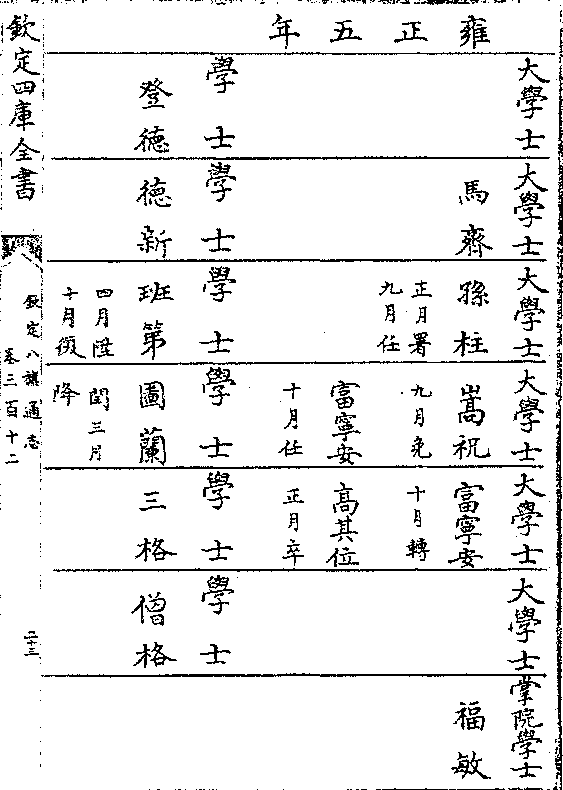 雍正五年
大學士
學士
登德
大學士
馬齊
學士
德新
大學士
孫柱
正月署
九月任
學士
班第
四月陞
十月
大學士
嵩祝
九月免
富寧安
十月任
學士
圖蘭
閏三月
降
大學士
富寧安
十月轉
高其位
正月卒
學士
三格
大學士
學士
僧格
掌院學士
福敏
欽定四庫全書
欽定八旗通志
卷三百十二
二十三